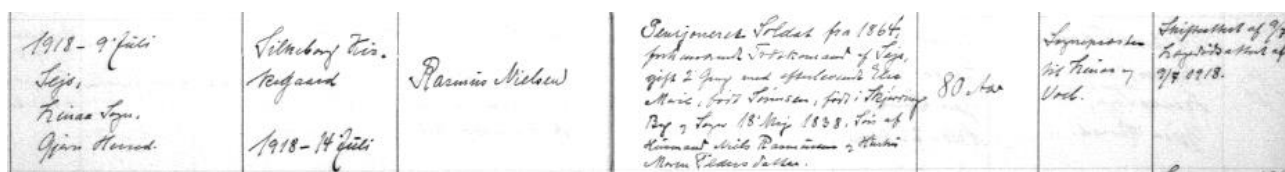 1918 - 9' Juli
Sejs,
Linaa Sogn,
Gjern Herred.
Silkeborg Kir-
kegaard
1918 - 14 Juli
Rasmus Nielsen
Pensioneret Soldat fra 1864,
forhenværende Fodermand af Sejs,
gift 2 Gang med efterlevende Else
Marie, født Sørensen, født i Skjørring
By og Sogn 18' Maj 1838. Søn af
Husmand Niels Rasmussen og Hustru
Maren Pedersdatter.
80 Aar
Sognepræsten
til Linaa og
Voel.
Skifteattest af 9/7
Lægedødsattest af
9/7 1918.